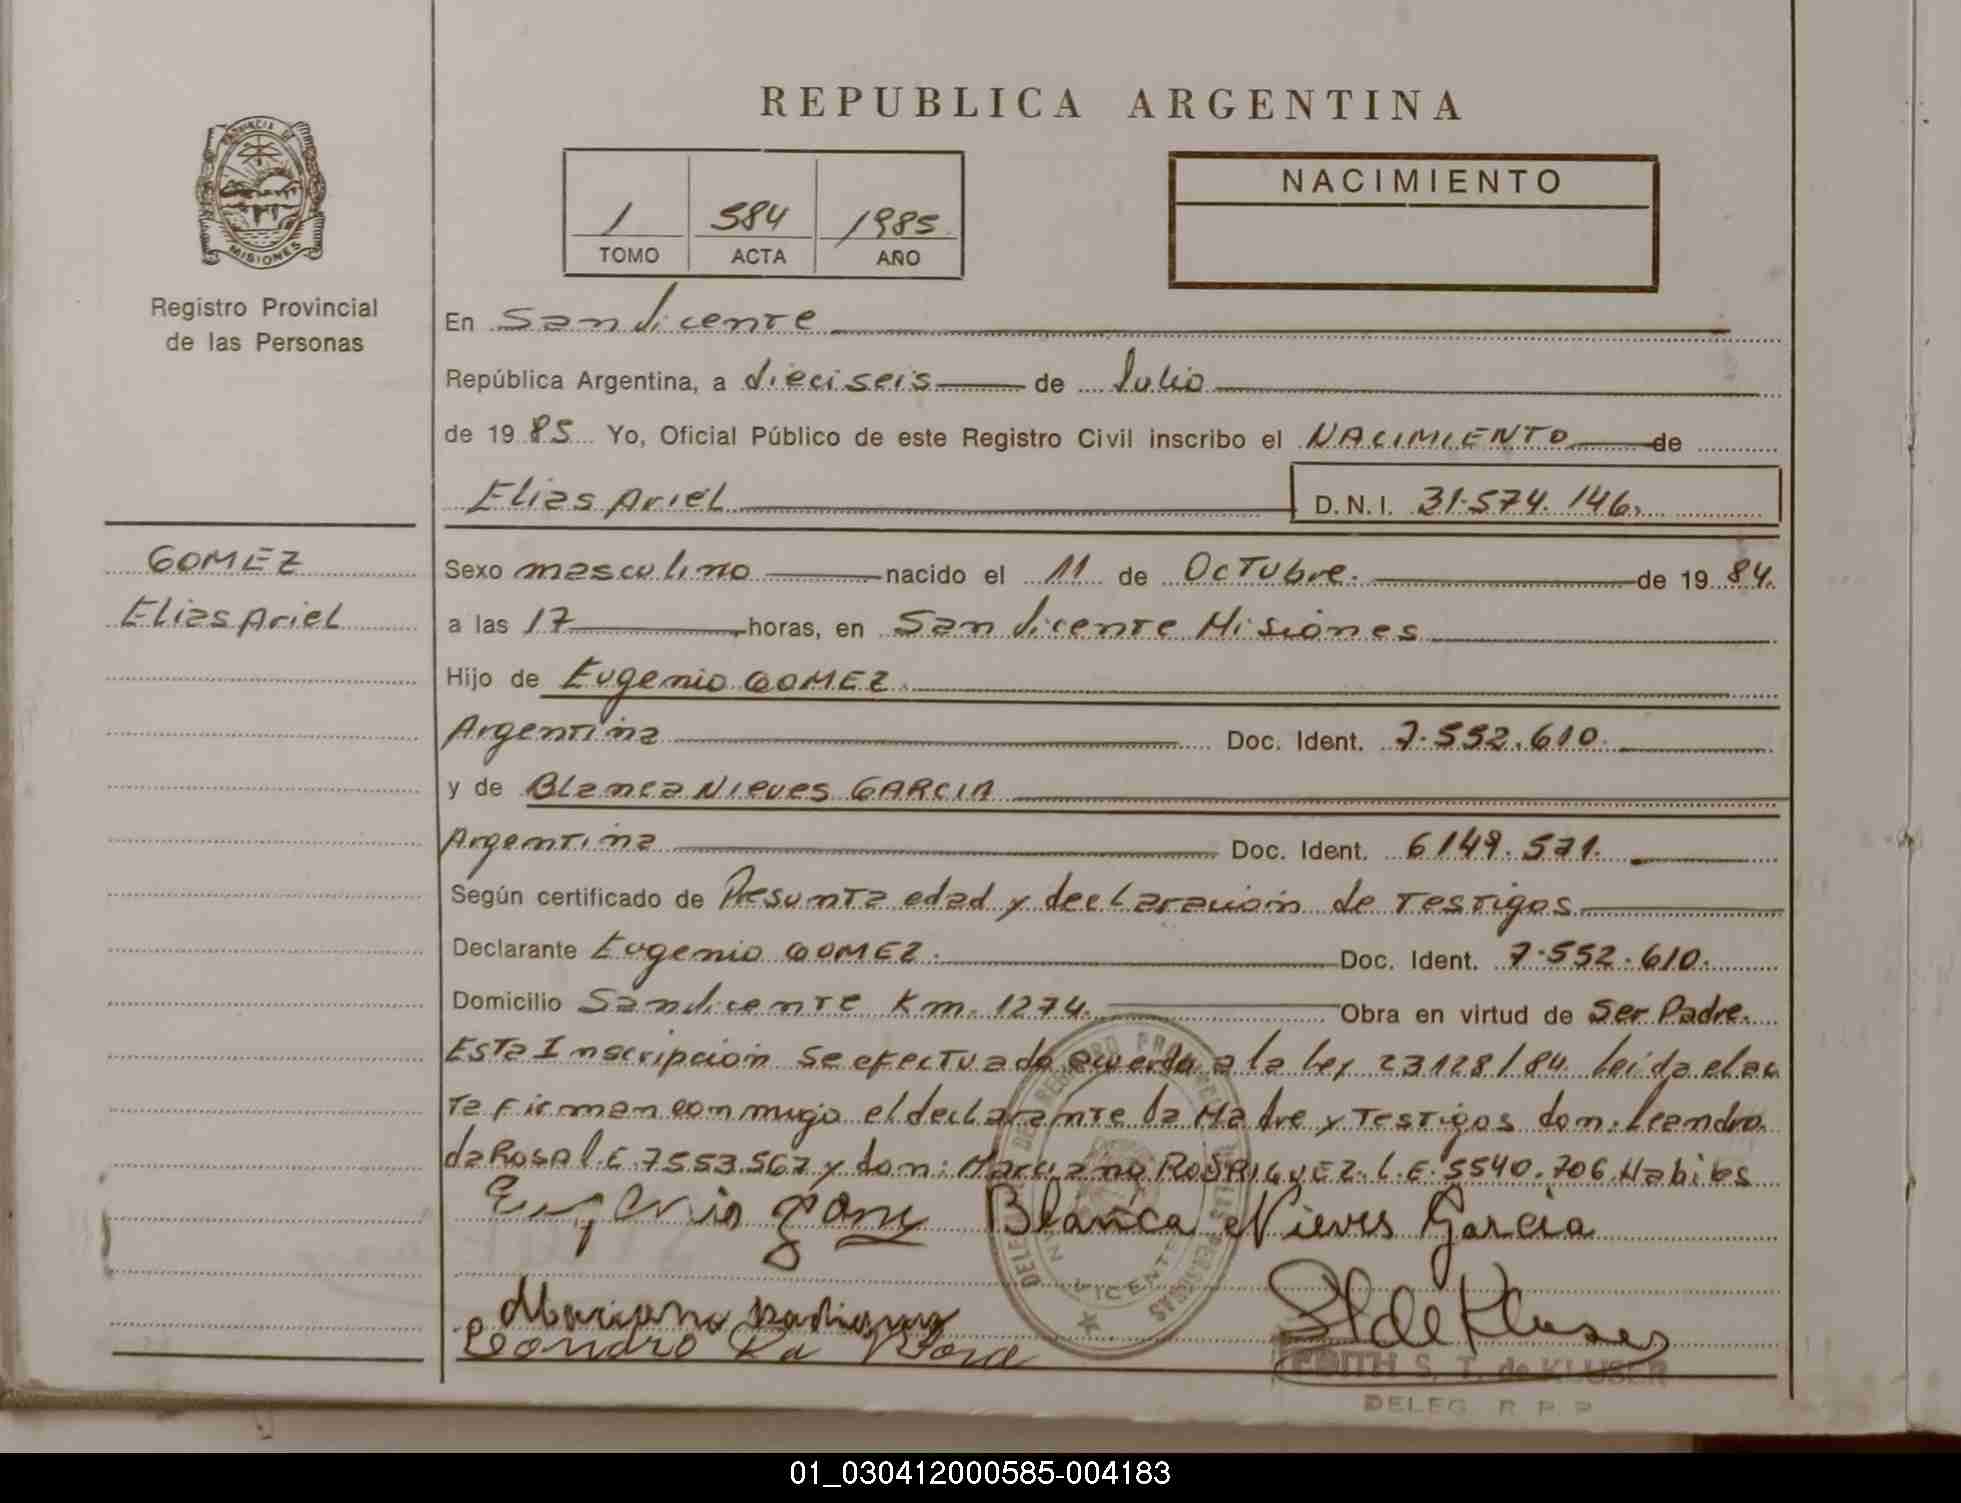 REPUBLICA ARGENTINA
PROVINCIA DE
MISIONES
Registro Provincial
de las Personas
1 584 1985
TOMO ACTA AÑO
NACIMIENTO
En San Vicente
República Argentina, a dieciseis de Julio
de 1985 Yo, Oficial Público de este Registro Civil inscribo el NACIMIENTO de
Elias Ariel D.N.I. 31.574.146.
GOMEZ
Elias Ariel
Sexo masculino nacido el 11 de Octubre. de 1984.
a las 17 horas, en San Vicente Misiones
Hijo de Eugenio GOMEZ.
Argentina Doc. Ident. 7.552.610.
y de Blanca Nieves GARCIA
Argentina Doc. Ident. 6149.571.
Según certificado de Presunta edad y declaración de Testigos
Declarante Eugenio GOMEZ. Doc. Ident. 7.552.610.
Domicilio San Vicente Km. 1274. Obra en virtud de Ser Padre.
Esta Inscripción se efectua de acuerdo a la Ley 23128/84 leida el ac
ta firman conmigo el declarante la Madre y Testigos don: Leandro
da Rosa L.E. 7553.567 y don: Marciano RODRIGUEZ. L.E. 5540.706 Habiles
Eugenio gome Blanca Nieves Garcia
EDITH S. T. de KLUSER
DELEG. R. P. P.
01_030412000585-004183